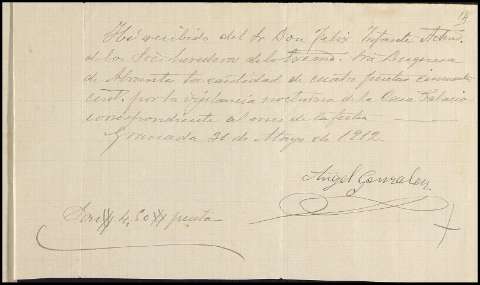 He recibido del Sr Don Felix Infante Admr.
de los Sres herederos de la Excma. Sra Duquesa
de Abrantes la cantidad de cuatro pesetas cincuenta
cent. por la vigilancia nocturna de la Casa Palacio
correspondiente al mes de la fecha
Granada 31 de Mayo de 1912
Angel Gonzalez
Son # 4,50 # pesetas